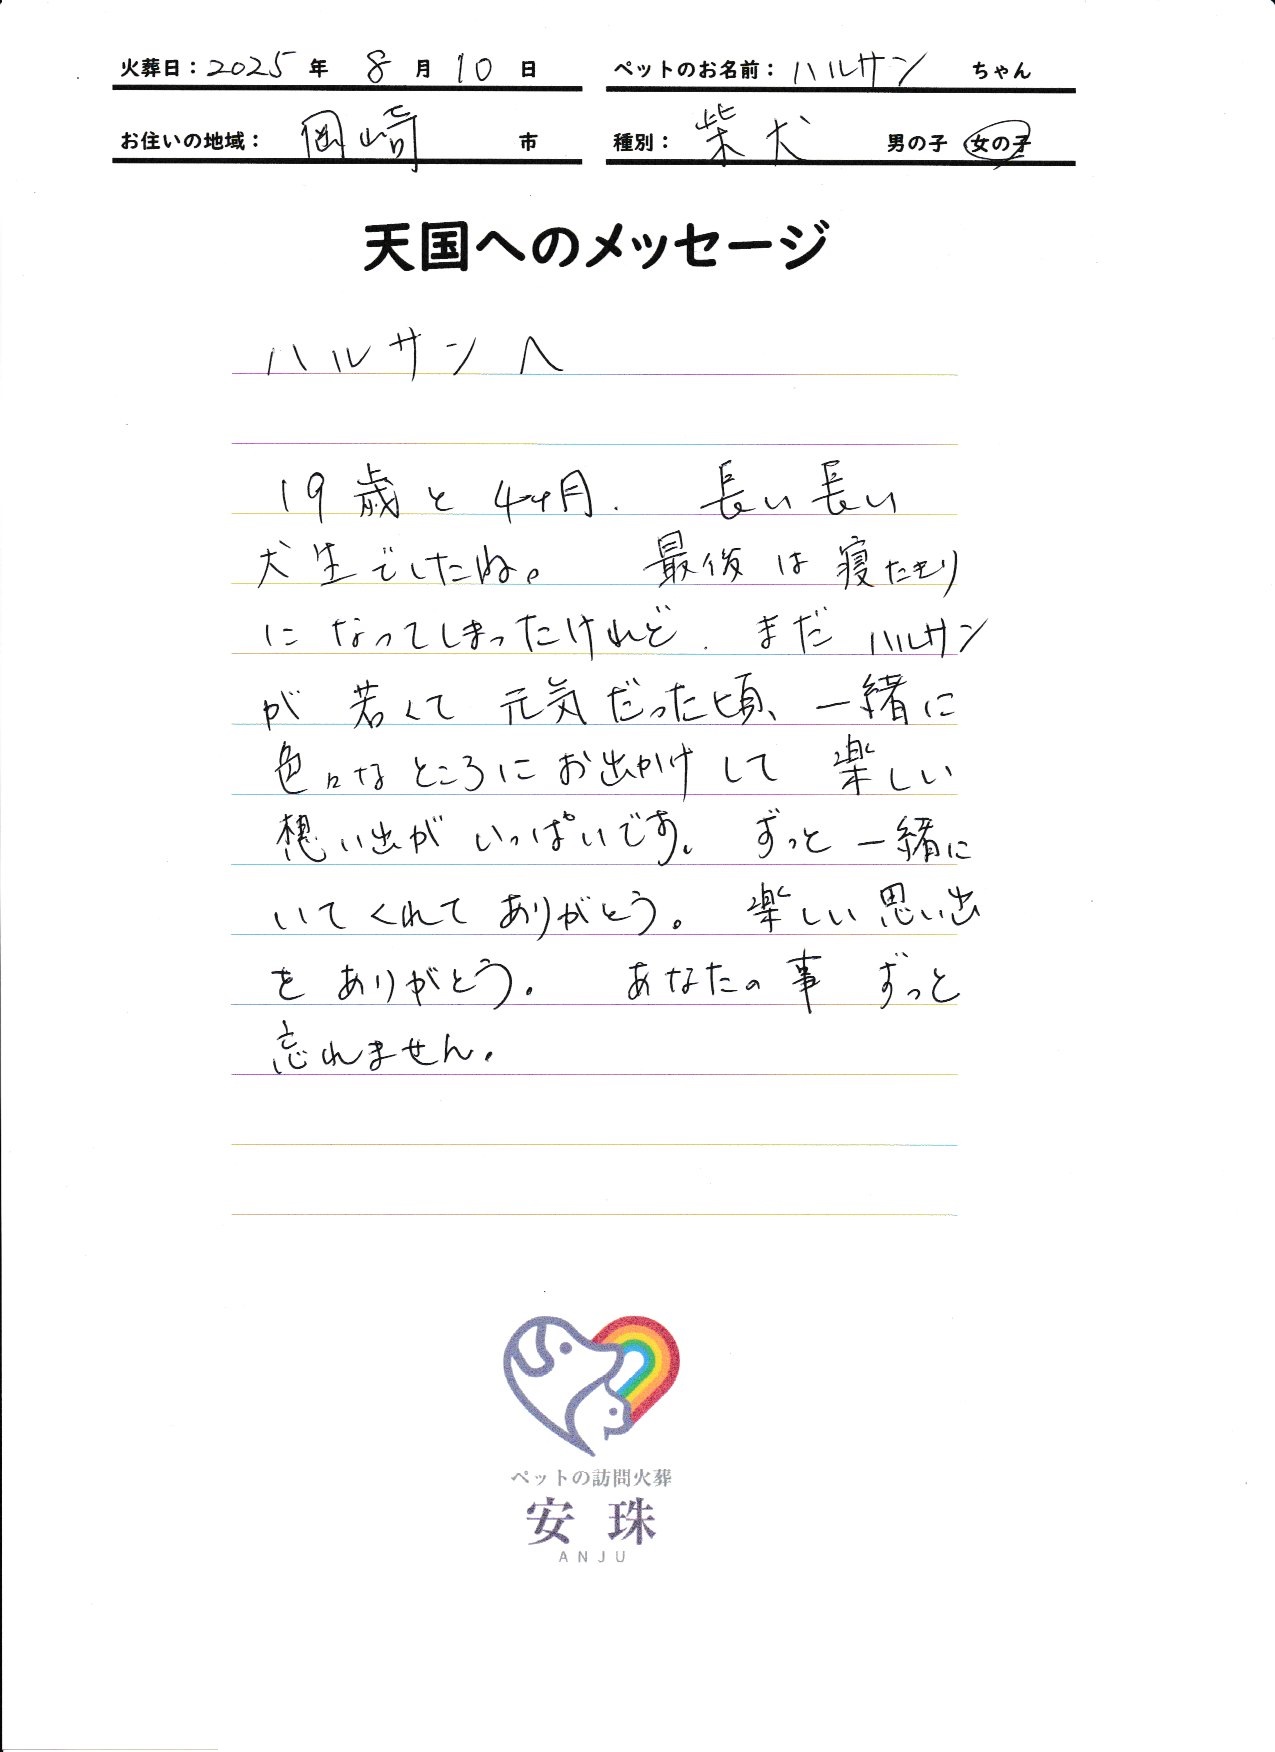 火葬日：2025年 8月10日
ペットのお名前：ハルサン ちゃん
お住いの地域：岡崎 市
種別：柴犬 男の子 女の子
天国へのメッセージ
ハルサンへ
19歳と4ヶ月. 長い長い
犬生でしたね。 最後は寝たきり
になってしまったけれど. まだハルサン
が若くて元気だった頃、一緒に
色々なところにお出かけして楽しい
想い出がいっぱいです。 ずっと一緒に
いてくれてありがとう。 楽しい思い出
をありがとう. あなたの事ずっと
忘れません.
ペットの訪問火葬
安珠
ANJU